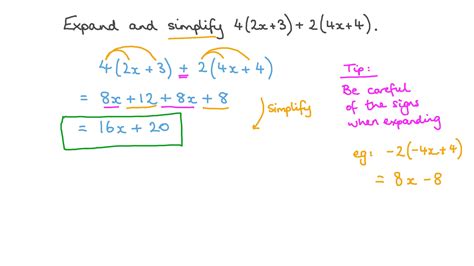 Expand and simplify 4(2x+3) + 2(4x+4).
4(2x+3) + 2(4x+4)
= 8x + 12 + 8x + 8
simplify
= 16x + 20
Tip:
Be careful
of the signs
when expanding
eg: -2(-4x+4)
= 8x - 8